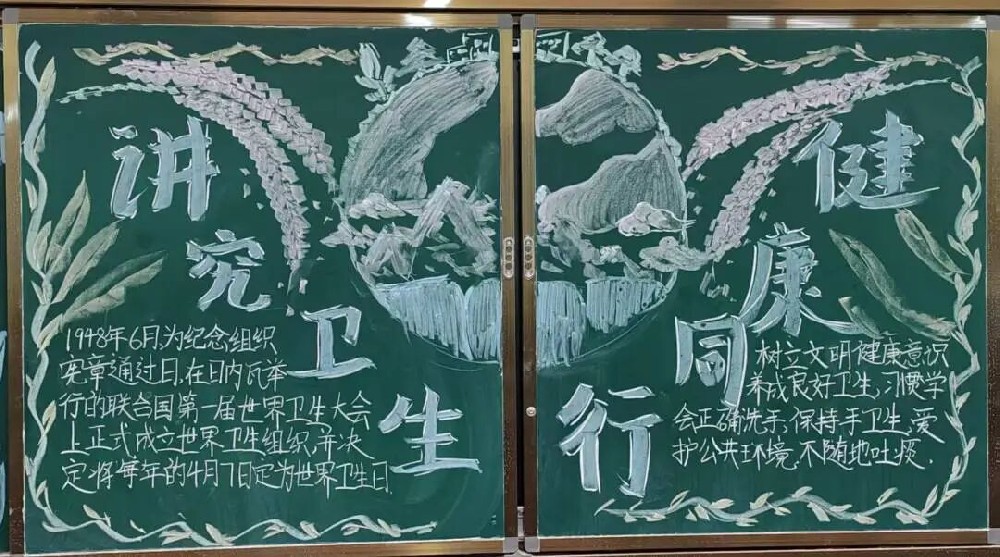 讲究卫生
1948年6月,为纪念组织
宪章通过日,在日内瓦举
行的联合国第一届世界卫生大会
上正式成立世界卫生组织,并决
定将每年的4月7日定为世界卫生日.
健康同行
树立文明健康意识
养成良好卫生,习惯学
会正确洗手,保持手卫生,爱
护公共环境,不随地吐痰.